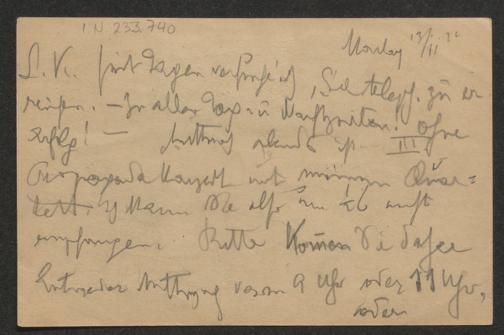 I N 233.740
Montag 13/11 22
L. K. seit Tagen versuche ich, Sie teleph. zu er-
reichen. – Zu allen Tag- u Nachtzeiten. Ohne
Erfolg! – Mittwoch abends ist III
Propaganda Konzert mit meinem Quar-
tett. Ich kann Sie also um ½6 nicht
empfangen. Bitte kommen Sie daher
entweder Mittwoch vorm 9 Uhr oder 11 Uhr,
oder